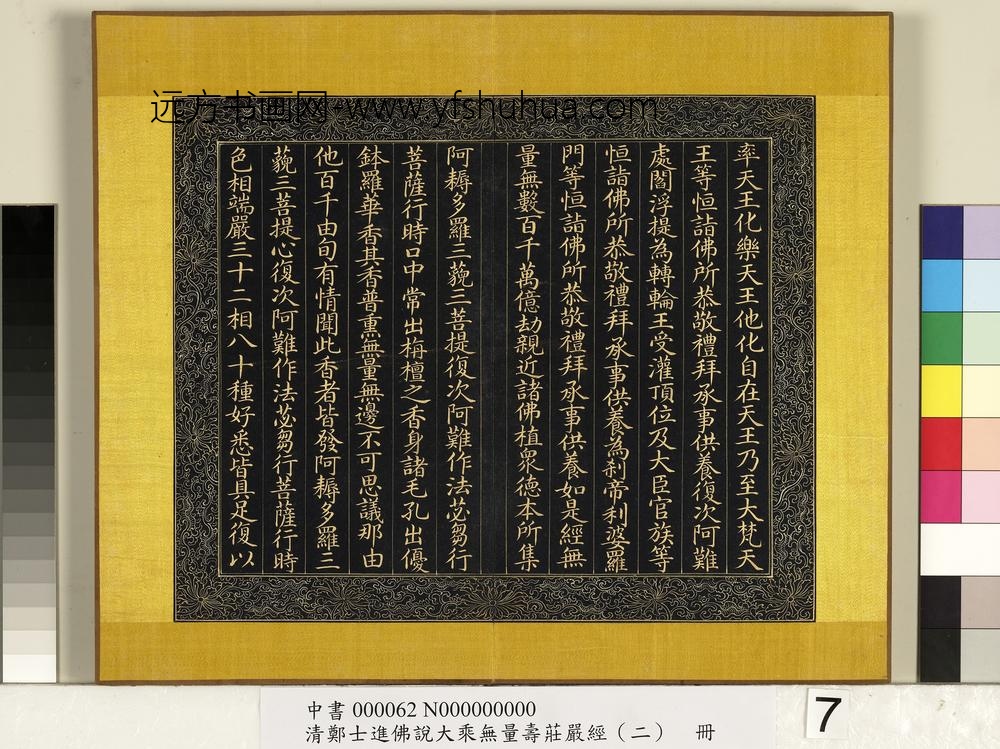 远方书画网-www.yfshuhua.com
率天王化樂天王他化自在天王乃至大梵天
王等恒詣佛所恭敬禮拜承事供養復次阿難
處閻浮提為轉輪王受灌頂位及大臣官族等
恒詣佛所恭敬禮拜承事供養為刹帝利婆羅
門等恒詣佛所恭敬禮拜承事供養如是經無
量無數百千萬億劫親近諸佛植衆德本所集
阿耨多羅三藐三菩提復次阿難作法苾芻行
菩薩行時口中常出栴檀之香身諸毛孔出優
鉢羅華香其香普熏無量無邊不可思議那由
他百千由旬有情聞此香者皆發阿耨多羅三
藐三菩提心復次阿難作法苾芻行菩薩行時
色相端嚴三十二相八十種好悉皆具足復以
中書 000062 N000000000
清鄭士進佛說大乘無量壽莊嚴經（二） 冊
7